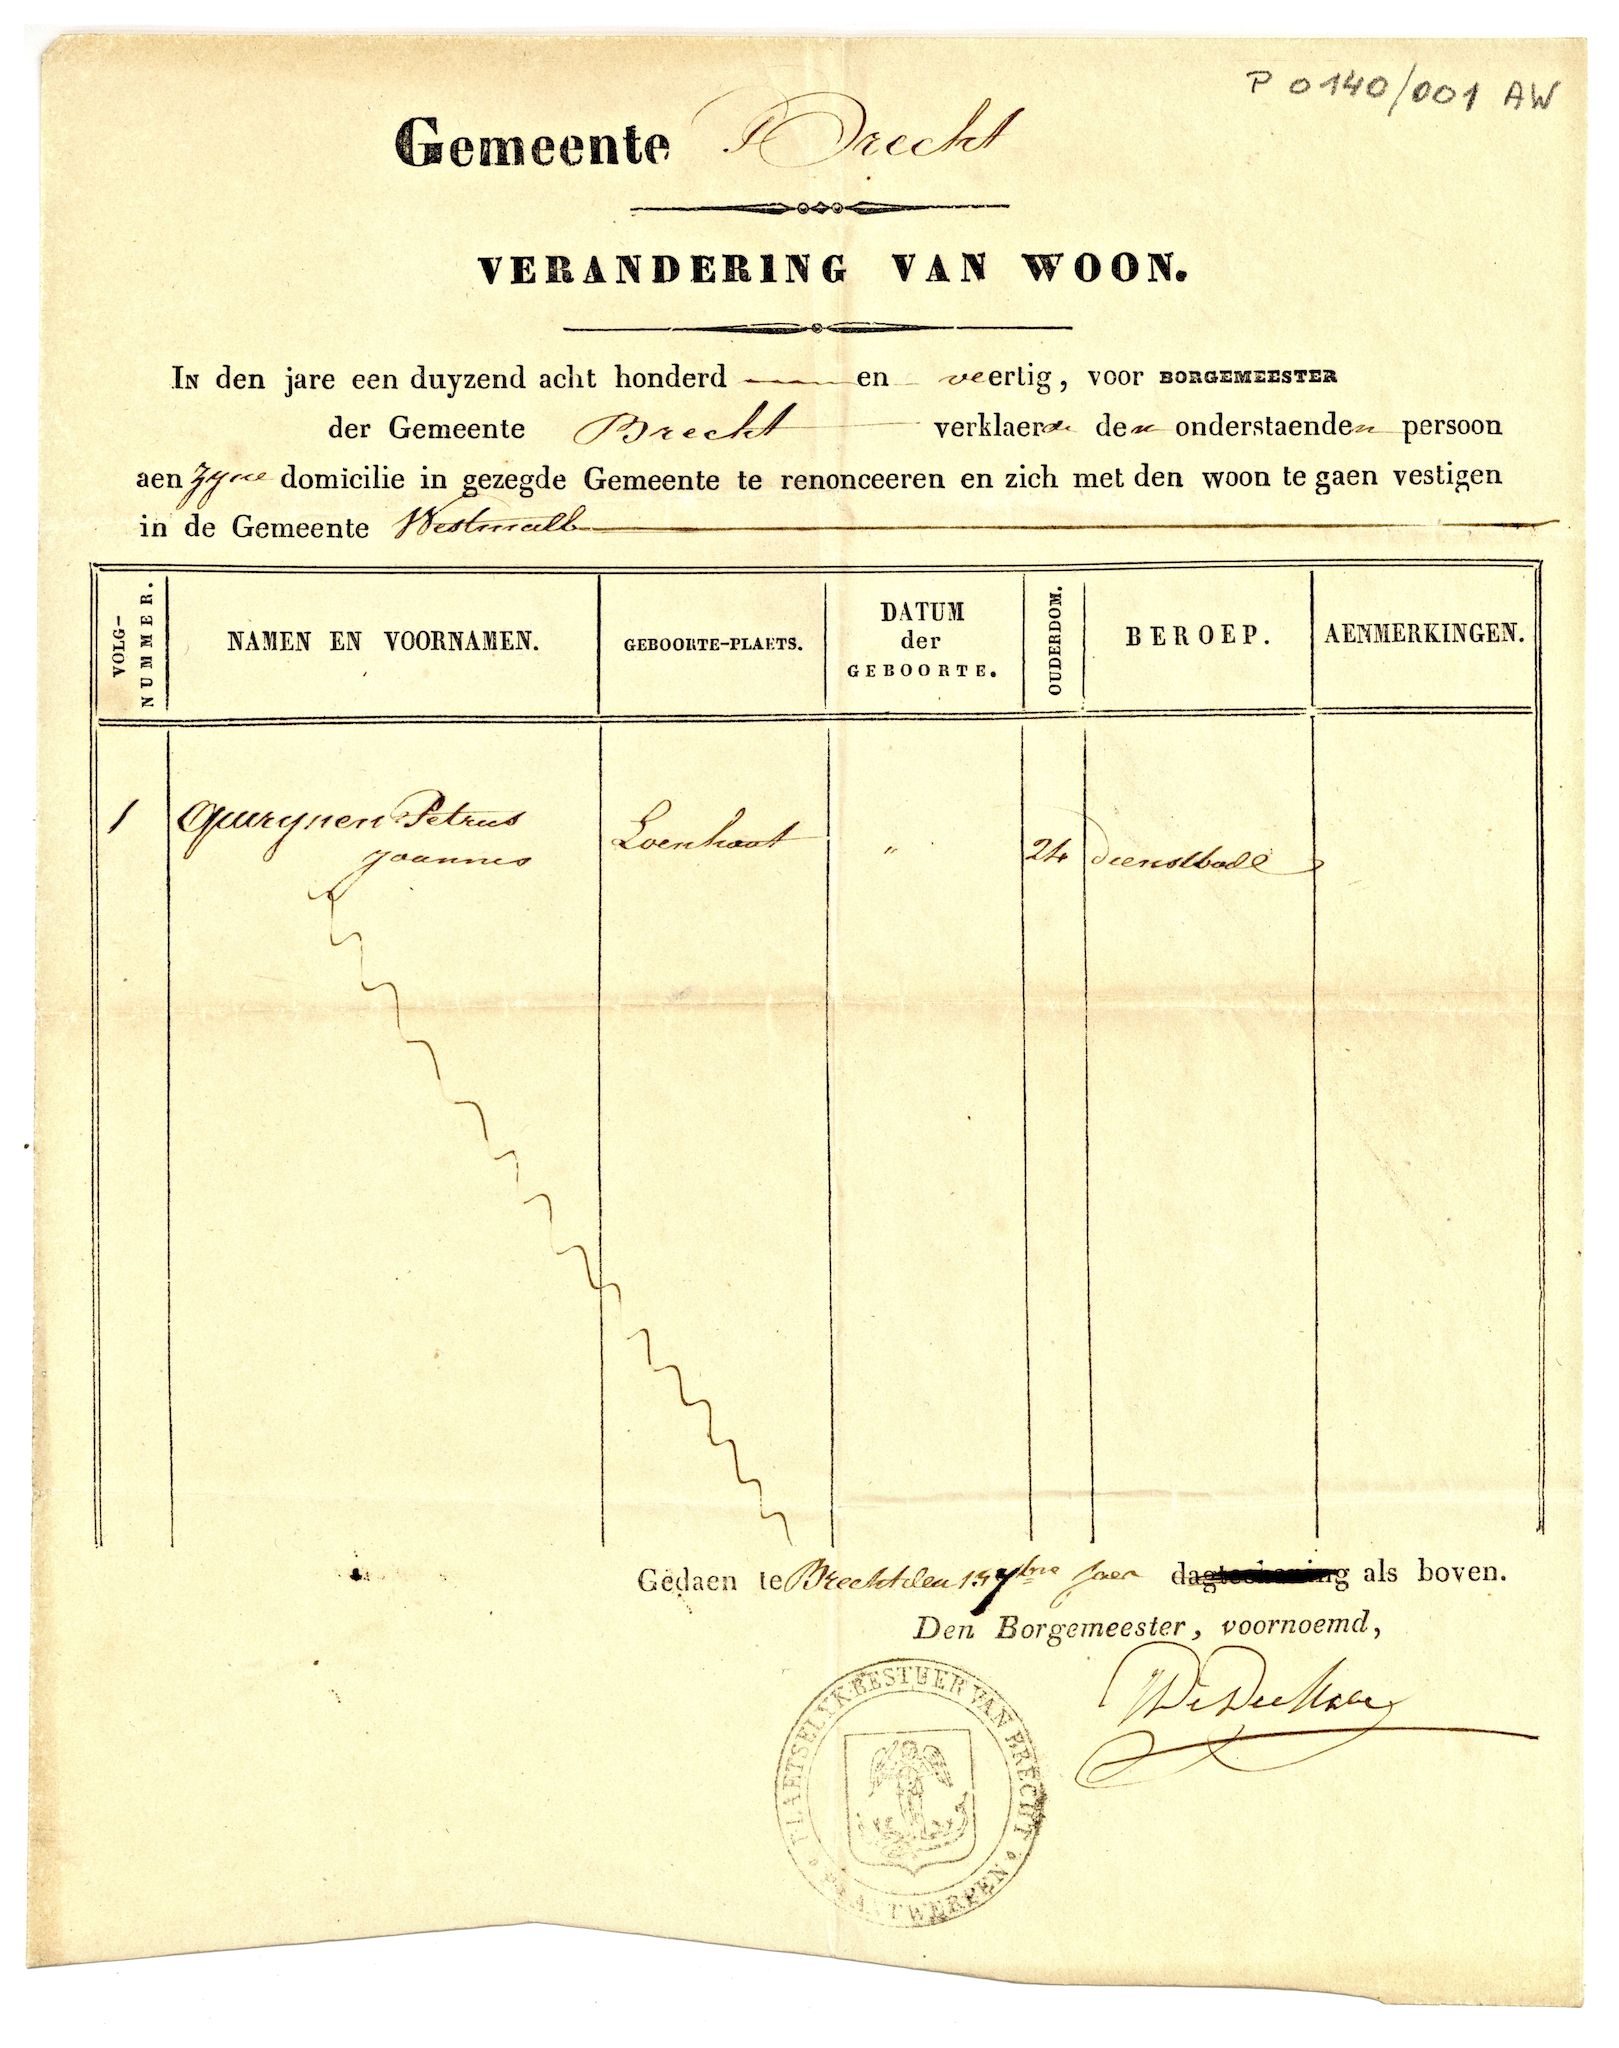 P 0140/001 AW
Gemeente Brecht
VERANDERING VAN WOON.
IN den jare een duyzend acht honderd en veertig, voor BORGEMEESTER
der Gemeente Brecht verklaert den onderstaenden persoon
aen zyne domicilie in gezegde Gemeente te renonceeren en zich met den woon te gaen vestigen
in de Gemeente Westmalle
VOLG-NUMMER. NAMEN EN VOORNAMEN. GEBOORTE-PLAETS. DATUM der GEBOORTE. OUDERDOM. BEROEP. AENMERKINGEN.
1 Quirynen Petrus Loenhout " 24 dienstbode
Joannes
Gedaen te Brecht den 13 7bre jaer als boven.
Den Borgemeester, voornoemd,
PLAETSELYK BESTUER VAN BRECHT
ANTWERPEN